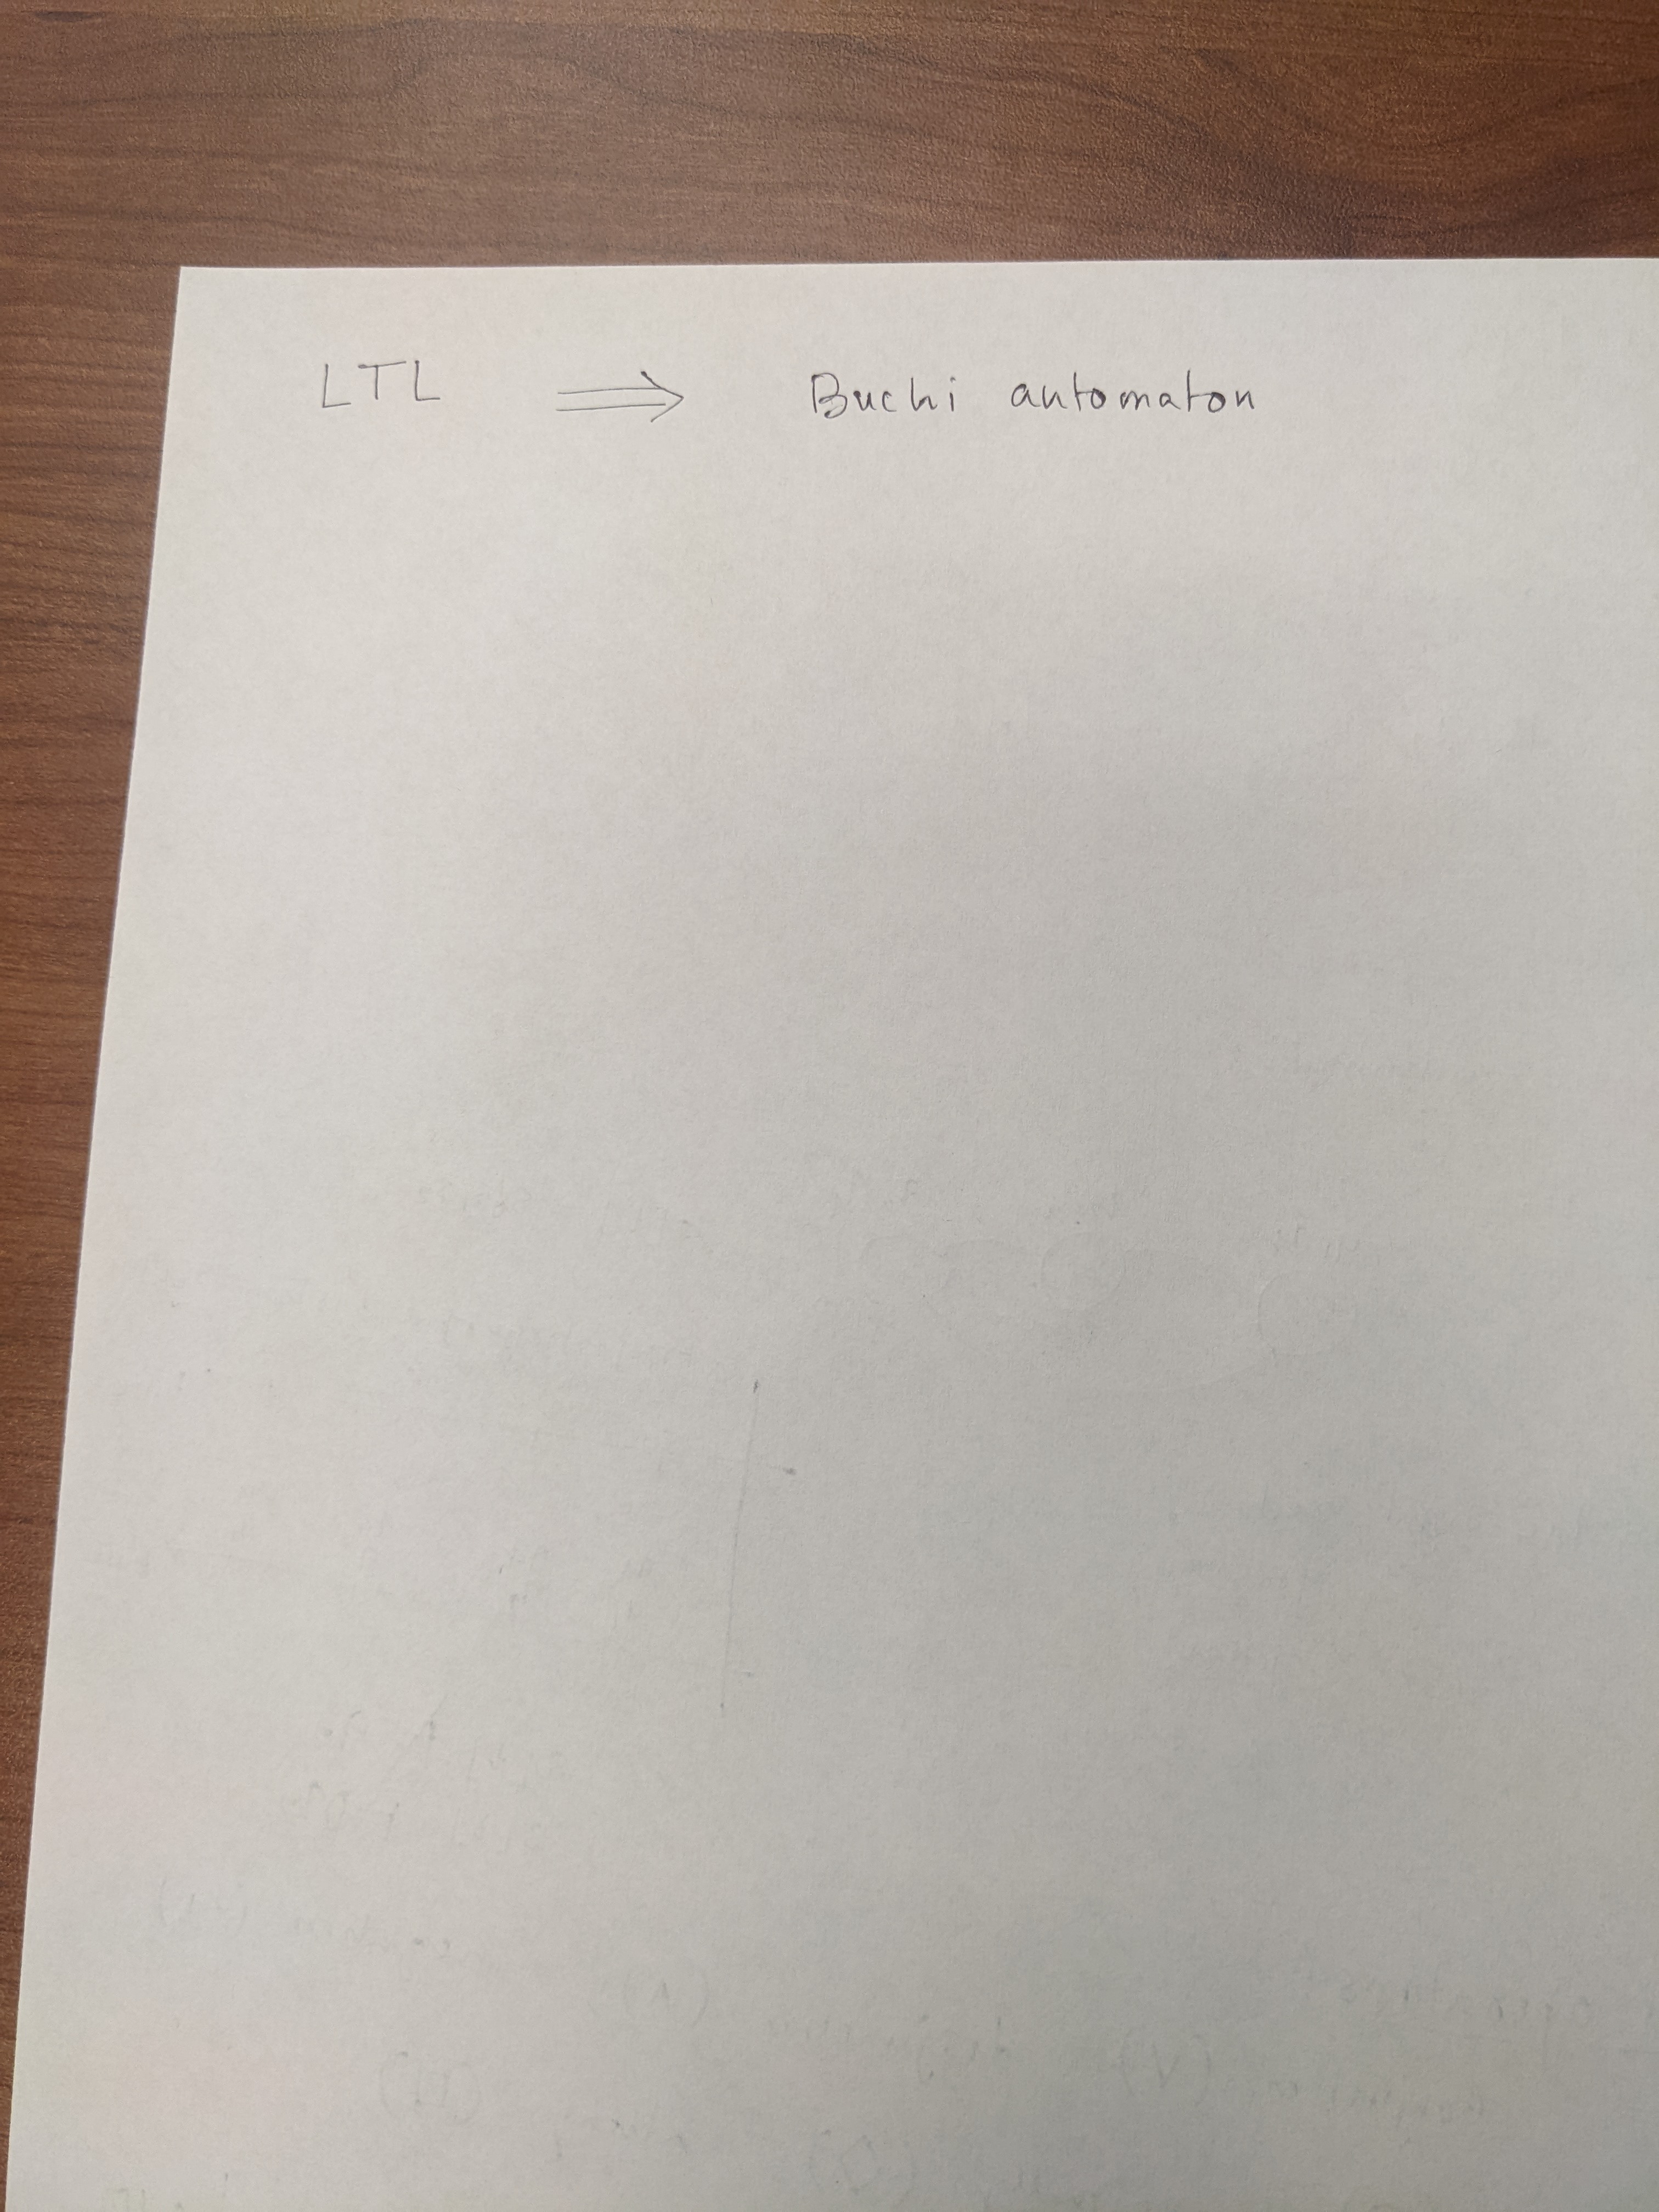 LTL ⟹ Buchi automaton